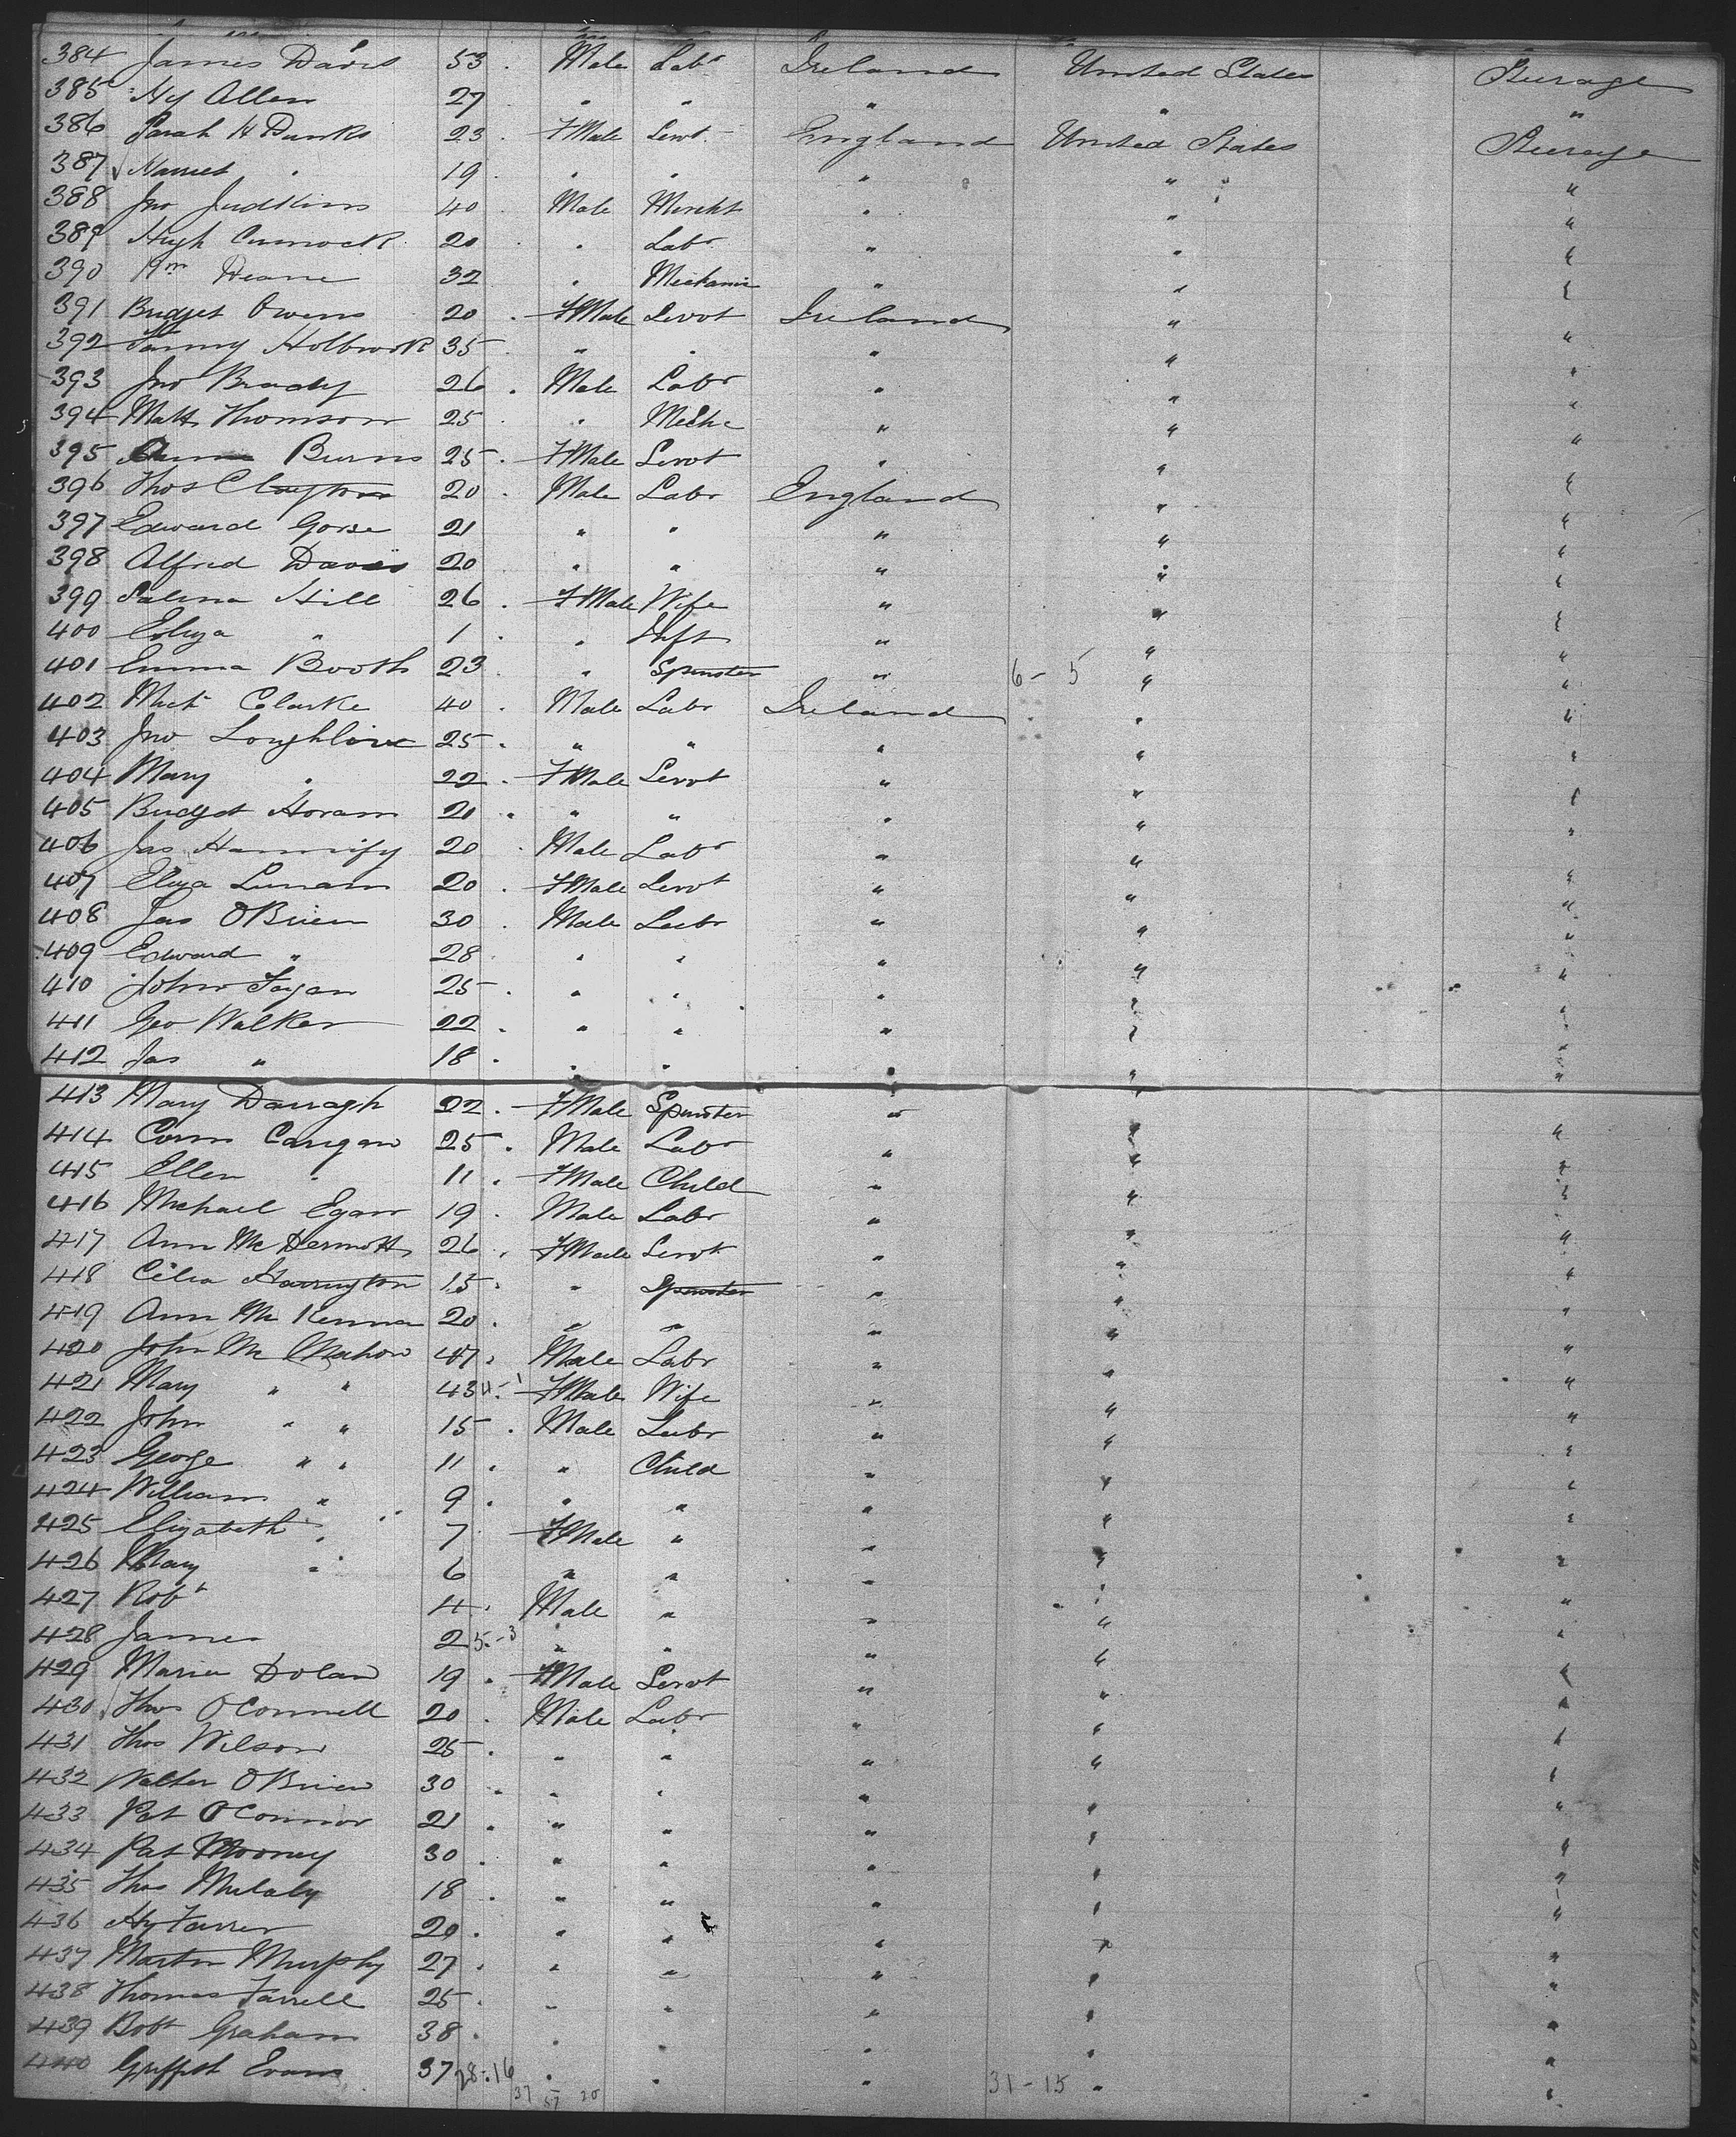 384 James Davis 53 Male Labr Ireland United States Steerage
385 Hy Allen 27 " " " " "
386 Sarah H Dunks 23 FMale Servt England United States Steerage
387 Harriet " 19 " " " " "
388 Jno Judkins 40 Male Mercht " " "
389 Hugh Cumock 20 " Labr " " "
390 Wm Deane 32 " Mechanic " " "
391 Bridget Owens 20 FMale Servt Ireland " "
392 Fanny Holbrook 35 " " " " "
393 Jno Brady 26 Male Labr " " "
394 Matt Thomson 25 " Mechc " " "
395 Burns 25 FMale Servt " " "
396 Thos Clayton 20 Male Labr England " "
397 Edward Gorse 21 " " " " "
398 Alfred Davis 20 " " " " "
399 Salina Hill 26 FMale Wife " " "
400 Eliza " 1 " Inft " " "
401 Emma Booth 23 " Spinster " 6-5 " "
402 Micl Clarke 40 Male Labr Ireland " "
403 Jno Loughlin 25 " " " " "
404 Mary " 22 FMale Servt " " "
405 Bridget Horam 20 " " " " "
406 Jas Hannify 20 Male Labr " " "
407 Eliza Lunam 20 FMale Servt " " "
408 Jas OBrien 30 Male Labr " " "
409 Edward " 28 " " " " "
410 John Fagan 25 " " " " "
411 Geo Walker 22 " " " " "
412 Jas " 18 " " " " "
413 Mary Darragh 22 FMale Spinster " " "
414 Corns Carigan 25 Male Labr " " "
415 Ellen " 11 FMale Child " " "
416 Michael Egan 19 Male Labr " " "
417 Ann McDermott 26 FMale Servt " " "
418 Celia Harrington 15 " Spinster " " "
419 Ann McKenna 20 " " " " "
420 John McMahon 47 Male Labr " " "
421 Mary " " 43 4-1 FMale Wife " " "
422 John " " 15 Male Labr " " "
423 George " " 11 " Child " " "
424 William " 9 " " " " "
425 Elizabeth " 7 FMale " " " "
426 Mary " 6 " " " " "
427 Robt 4 Male " " " "
428 James 2 5-3 " " " " "
429 Maria Dolan 19 FMale Servt " " "
430 Thos OConnell 20 Male Labr " " "
431 Thos Wilson 25 " " " " "
432 Walter OBrien 30 " " " " "
433 Pat OConnor 21 " " " " "
434 Pat Mooney 30 " " " " "
435 Thos Mulaly 18 " " " " "
436 Hy Farrer 20 " " " " "
437 Martin Murphy 27 " " " " "
438 Thomas Farrell 25 " " " " "
439 Robt Graham 38 " " " " "
440 Griffith Evans 37 28-16 " " " 31-15 " "
37 57 20